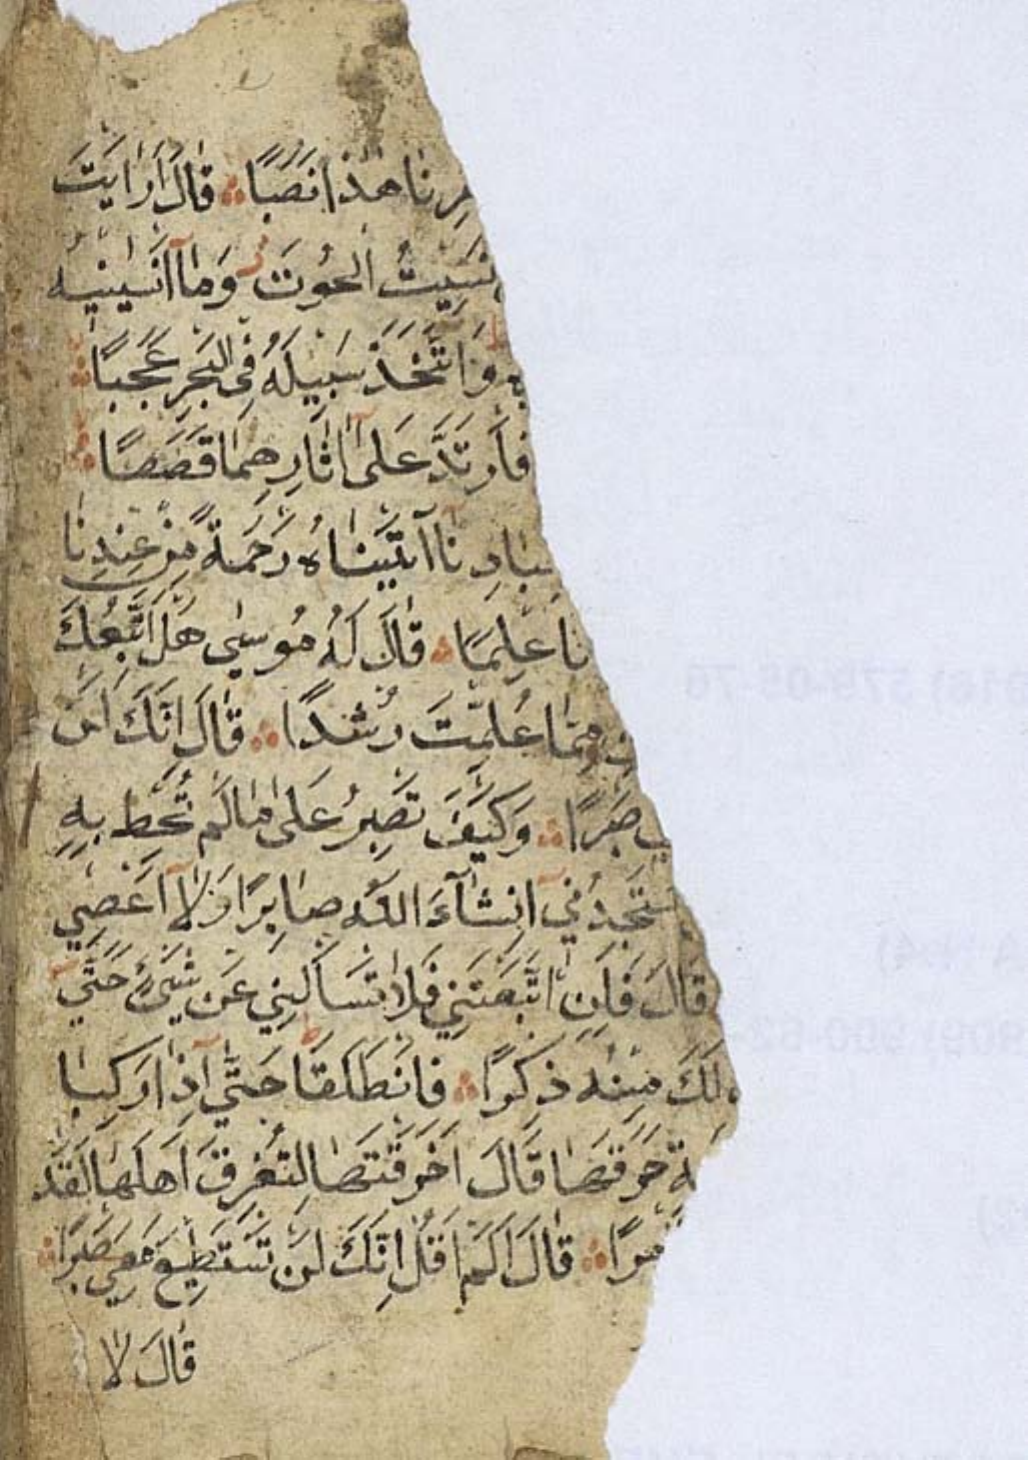 رِنَا هٰذَا نَصَبًا ۞ قَالَ اَرَاَيْتَ
نَسِيتُ الْحُوتَ ز وَمَا اَنْسٰينِيهُ
وَاتَّخَذَ سَبِيلَهُ فِي الْبَحْرِ عَجَبًا ۞
فَارْتَدَّ عَلٰى اٰثَارِهِمَا قَصَصًا ۞
بَادِنَا اٰتَيْنَاهُ رَحْمَةً مِنْ عِنْدِنَا
نَا عِلْمًا ۞ قَالَ لَهُ مُوسٰي هَلْ اَتَّبِعُكَ
مِمَّا عُلِّمْتَ رُشْدًا ۞ قَالَ اِنَّكَ لَنْ
صَبْرًا ۞ وَكَيْفَ تَصْبِرُ عَلٰى مَا لَمْ تُحِطْ بِهِ
سَتَجِدُنِي اِنْشَآءَ اللّٰهُ صَابِرًا وَلَآ اَعْصِي
قَالَ فَاِنِ اتَّبَعْتَنِي فَلَا تَسْاَلْنِي عَنْ شَيْءٍ حَتّٰي
لَكَ مِنْهُ ذِكْرًا ۞ فَانْطَلَقَا حَتّٰٓي اِذَا رَكِبَا
ةِ خَرَقَهَا قَالَ اَخَرَقْتَهَا لِتُغْرِقَ اَهْلَهَا لَقَدْ
مْرًا ۞ قَالَ اَلَمْ اَقُلْ اِنَّكَ لَنْ تَسْتَطِيعَ مَعِيَ صَبْرًا ۞
قَالَ لَا